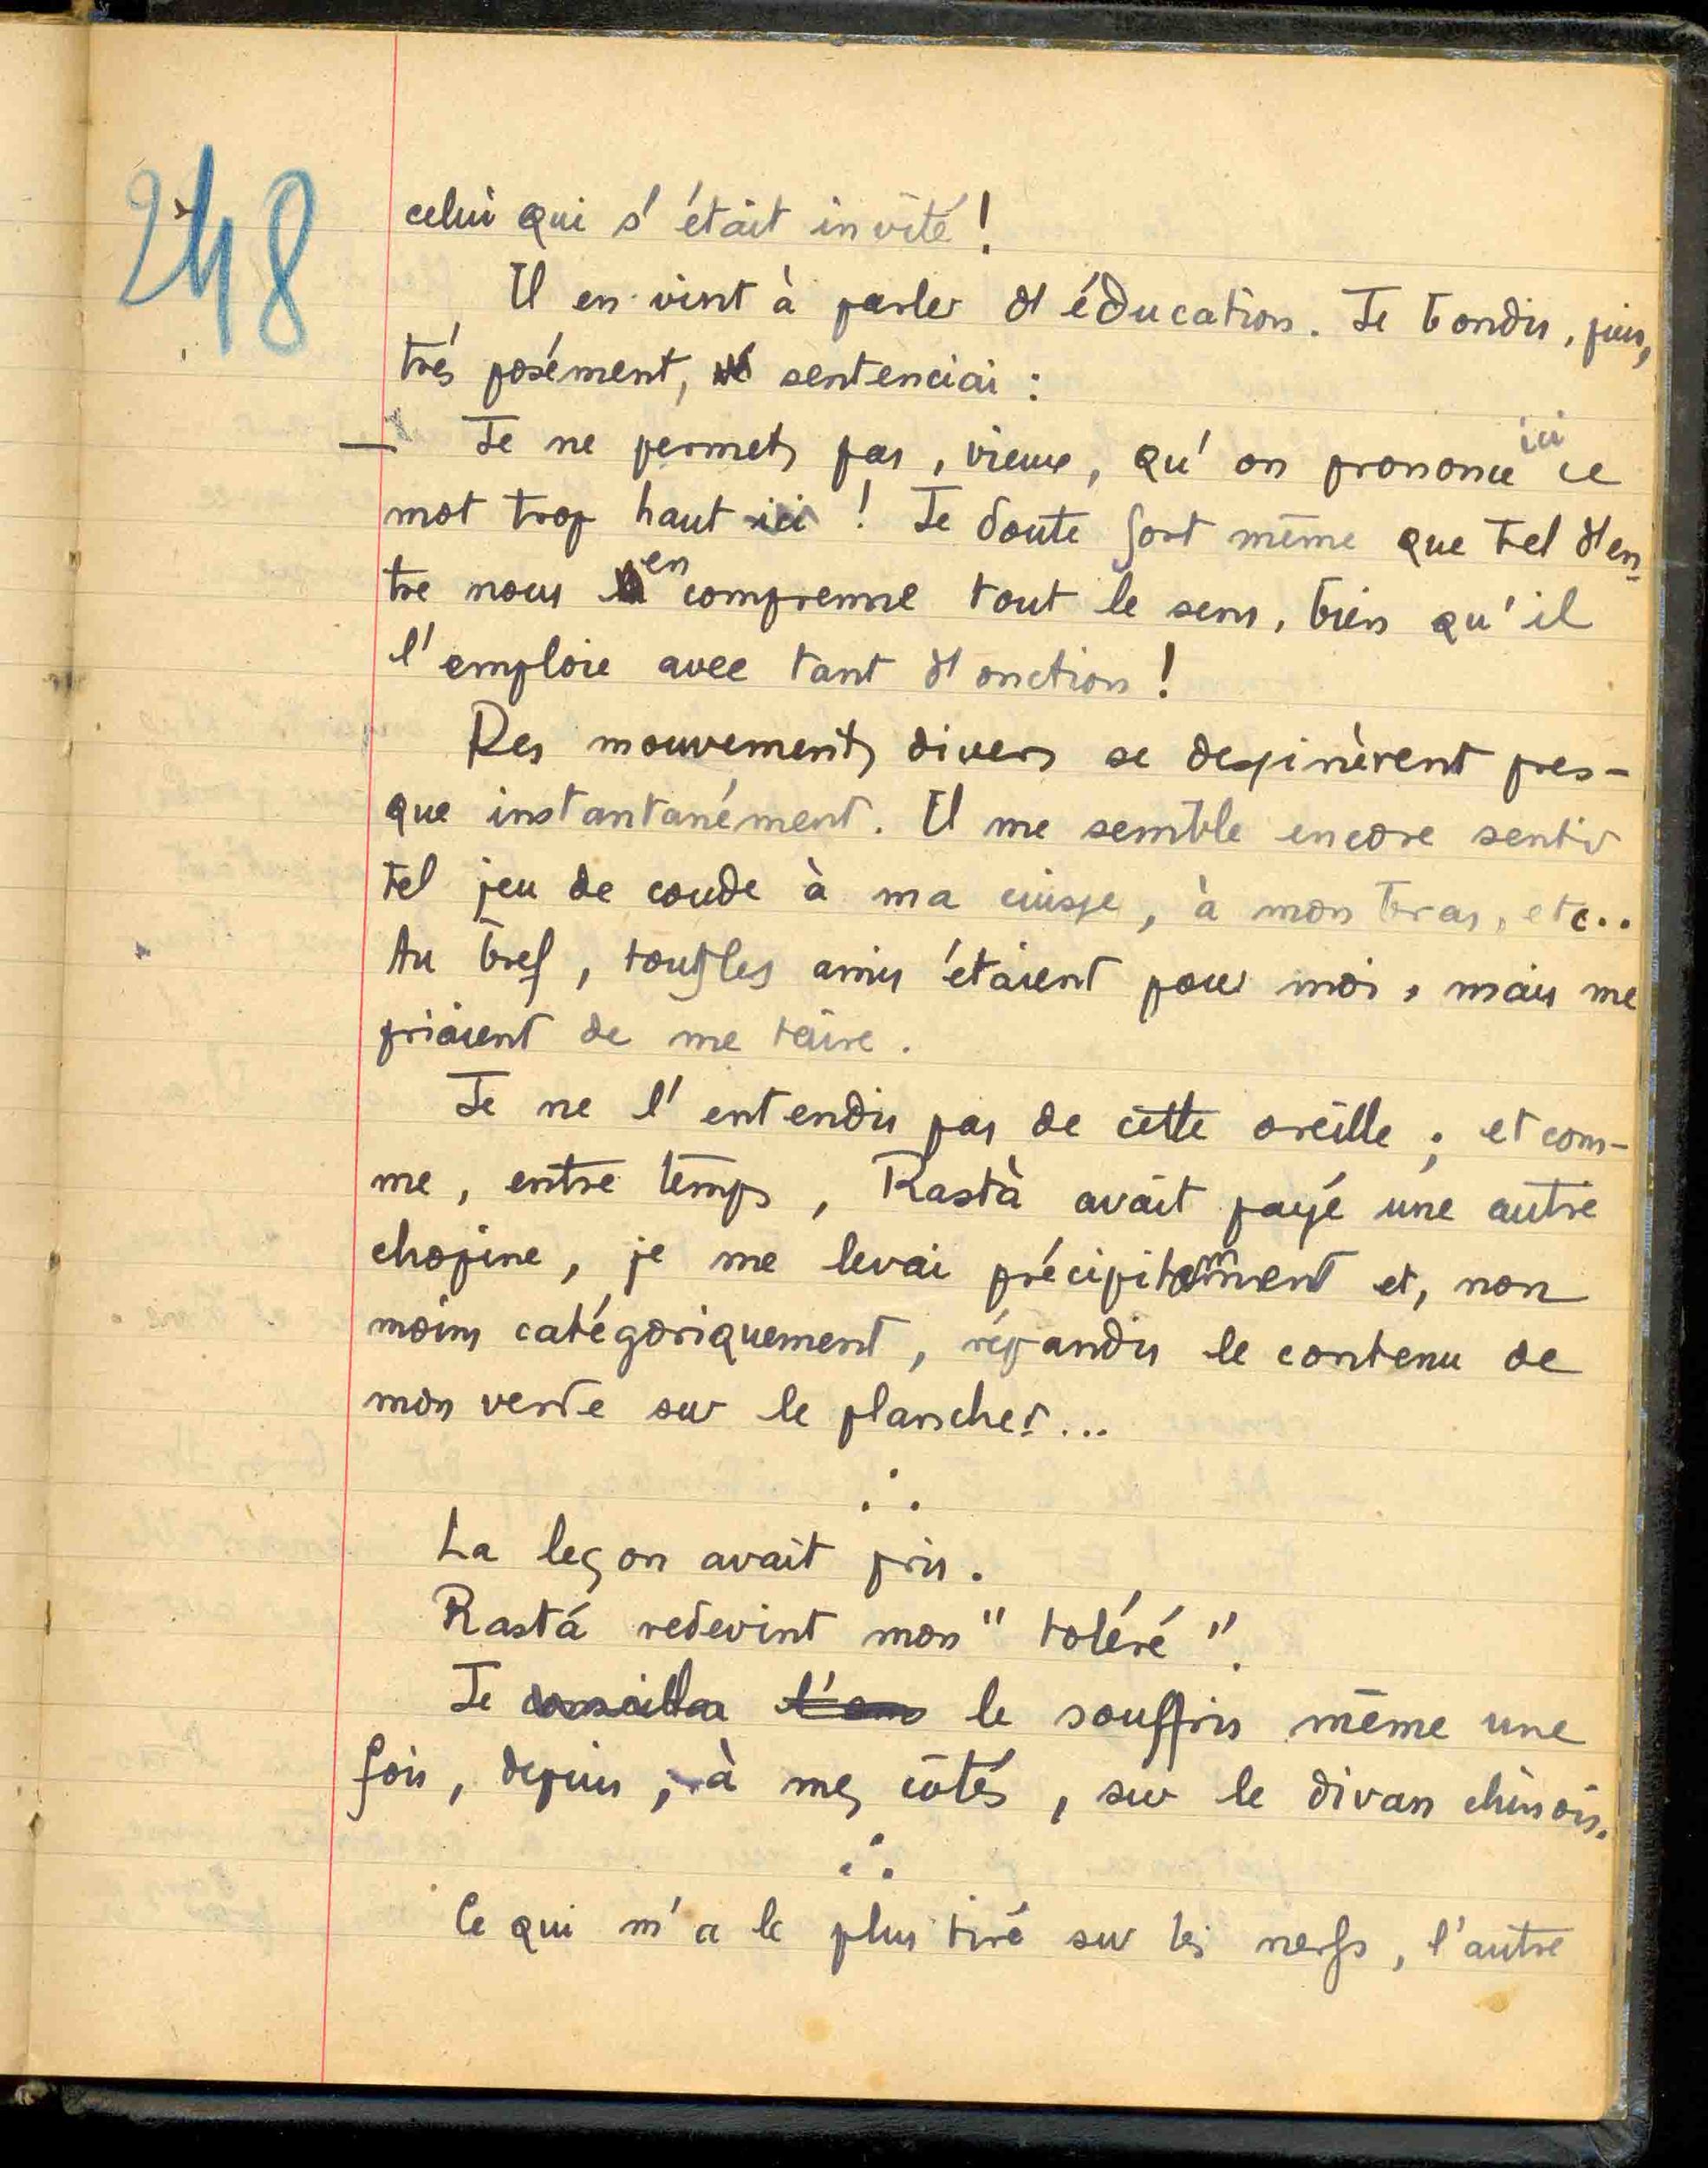 248
celui qui s'était invité !
Il en vint à parler d'éducation. Je bondis, puis,
très posément, sentenciai :
— Je ne permets pas, vieux, qu'on prononce ici ce
mot trop haut ici ! Je doute fort même que tel d'en-
tre nous en comprenne tout le sens, bien qu'il
l'emploie avec tant d'onction !
Des mouvements divers se dessinèrent pres-
que instantanément. Il me semble encore sentir
tel jeu de coude à ma cuisse, à mon bras, etc..
Au bref, tous les amis étaient pour moi, mais me
priaient de me taire.
Je ne l'entendis pas de cette oreille ; et com-
me, entre temps, Rastà avait payé une autre
chopine, je me levai précipitamment et, non
moins catégoriquement, répandis le contenu de
mon verre sur le plancher...
∴
La leçon avait pris.
Rastá redevint mon "toléré".
Je le souffris même une
fois, depuis, à mes côtés, sur le divan chinois.
∴
Ce qui m'a le plus tiré sur les nerfs, l'autre